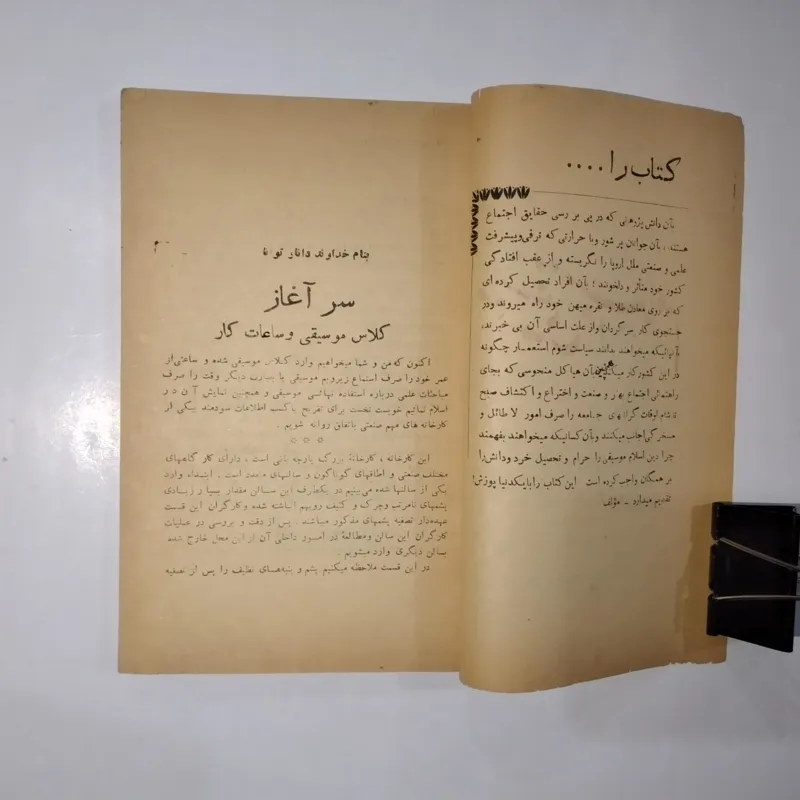 کتاب را ....
بآن دانش پژوهانی که در پی بررسی حقایق اجتماع
هستند، بآن جوانان پر شور و با حرارتی که ترقی و پیشرفت
علمی و صنعتی ملل اروپا را نگریسته و از عقب افتادگی
کشور خود متأثر و دلخونند؛ بآن افراد تحصیل کرده ای
که بر روی معادن طلا و نقره میهن خود راه میروند و در
جستجوی کار سرگردان و از علت اساسی آن بی خبرند،
بآنانیکه میخواهند بدانند سیاست شوم استعمار چگونه
در این کشور کار میکند همچنین بآن هیاکل منحوسی که بجای
راهنمائی اجتماع بهنر و صنعت و اختراع و اکتشاف صبح
تا شام اوقات گرانبهای جامعه را صرف امور لاطائل و
مسخرگی اجانب میکنند و بآن کسانیکه میخواهند بفهمند
چرا دین اسلام موسیقی را حرام و تحصیل خرد و دانش را
بر همگان واجب کرده است این کتاب را با یکدنیا پوزش
تقدیم میدارد ـ مؤلف
بنام خداوند دانای توانا
سر آغاز
کلاس موسیقی و ساعات کار
اکنون که من و شما میخواهیم وارد کلاس موسیقی شده و ساعتی از
عمر خود را صرف استماع زیر و بم موسیقی یا بعبارت دیگر وقت را صرف
مباحثات علمی درباره استفاده نهائی موسیقی و همچنین نمایش آن در
اسلام نمائیم خوبست نخست برای تفریح یا کسب اطلاعات سودمند بیکی از
کارخانه های مهم صنعتی باتفاق روانه شویم .
* * *
این کارخانه، کارخانهٔ بزرگ پارچه بافی است، دارای کارگاههای
مختلف صنعتی و اطاقهای گوناگون و سالنهای متعدد است. ابتداء وارد
یکی از سالنها شده می‌بینیم در یکطرف این سالن مقدار بسیار زیادی
پشمهای نامرتب و چرک و کثیف رویهم انباشته شده و کارگران این قسمت
عهده‌دار تصفیه پشمهای مذکور میباشند. پس از دقت و بررسی در عملیات
کارگران این سالن و مطالعهٔ در امور داخلی آن از این محل خارج شده
سالن دیگری وارد میشویم .
در این قسمت ملاحظه میکنیم پشم و پنبه‌های نظیف را پس از تصفیه